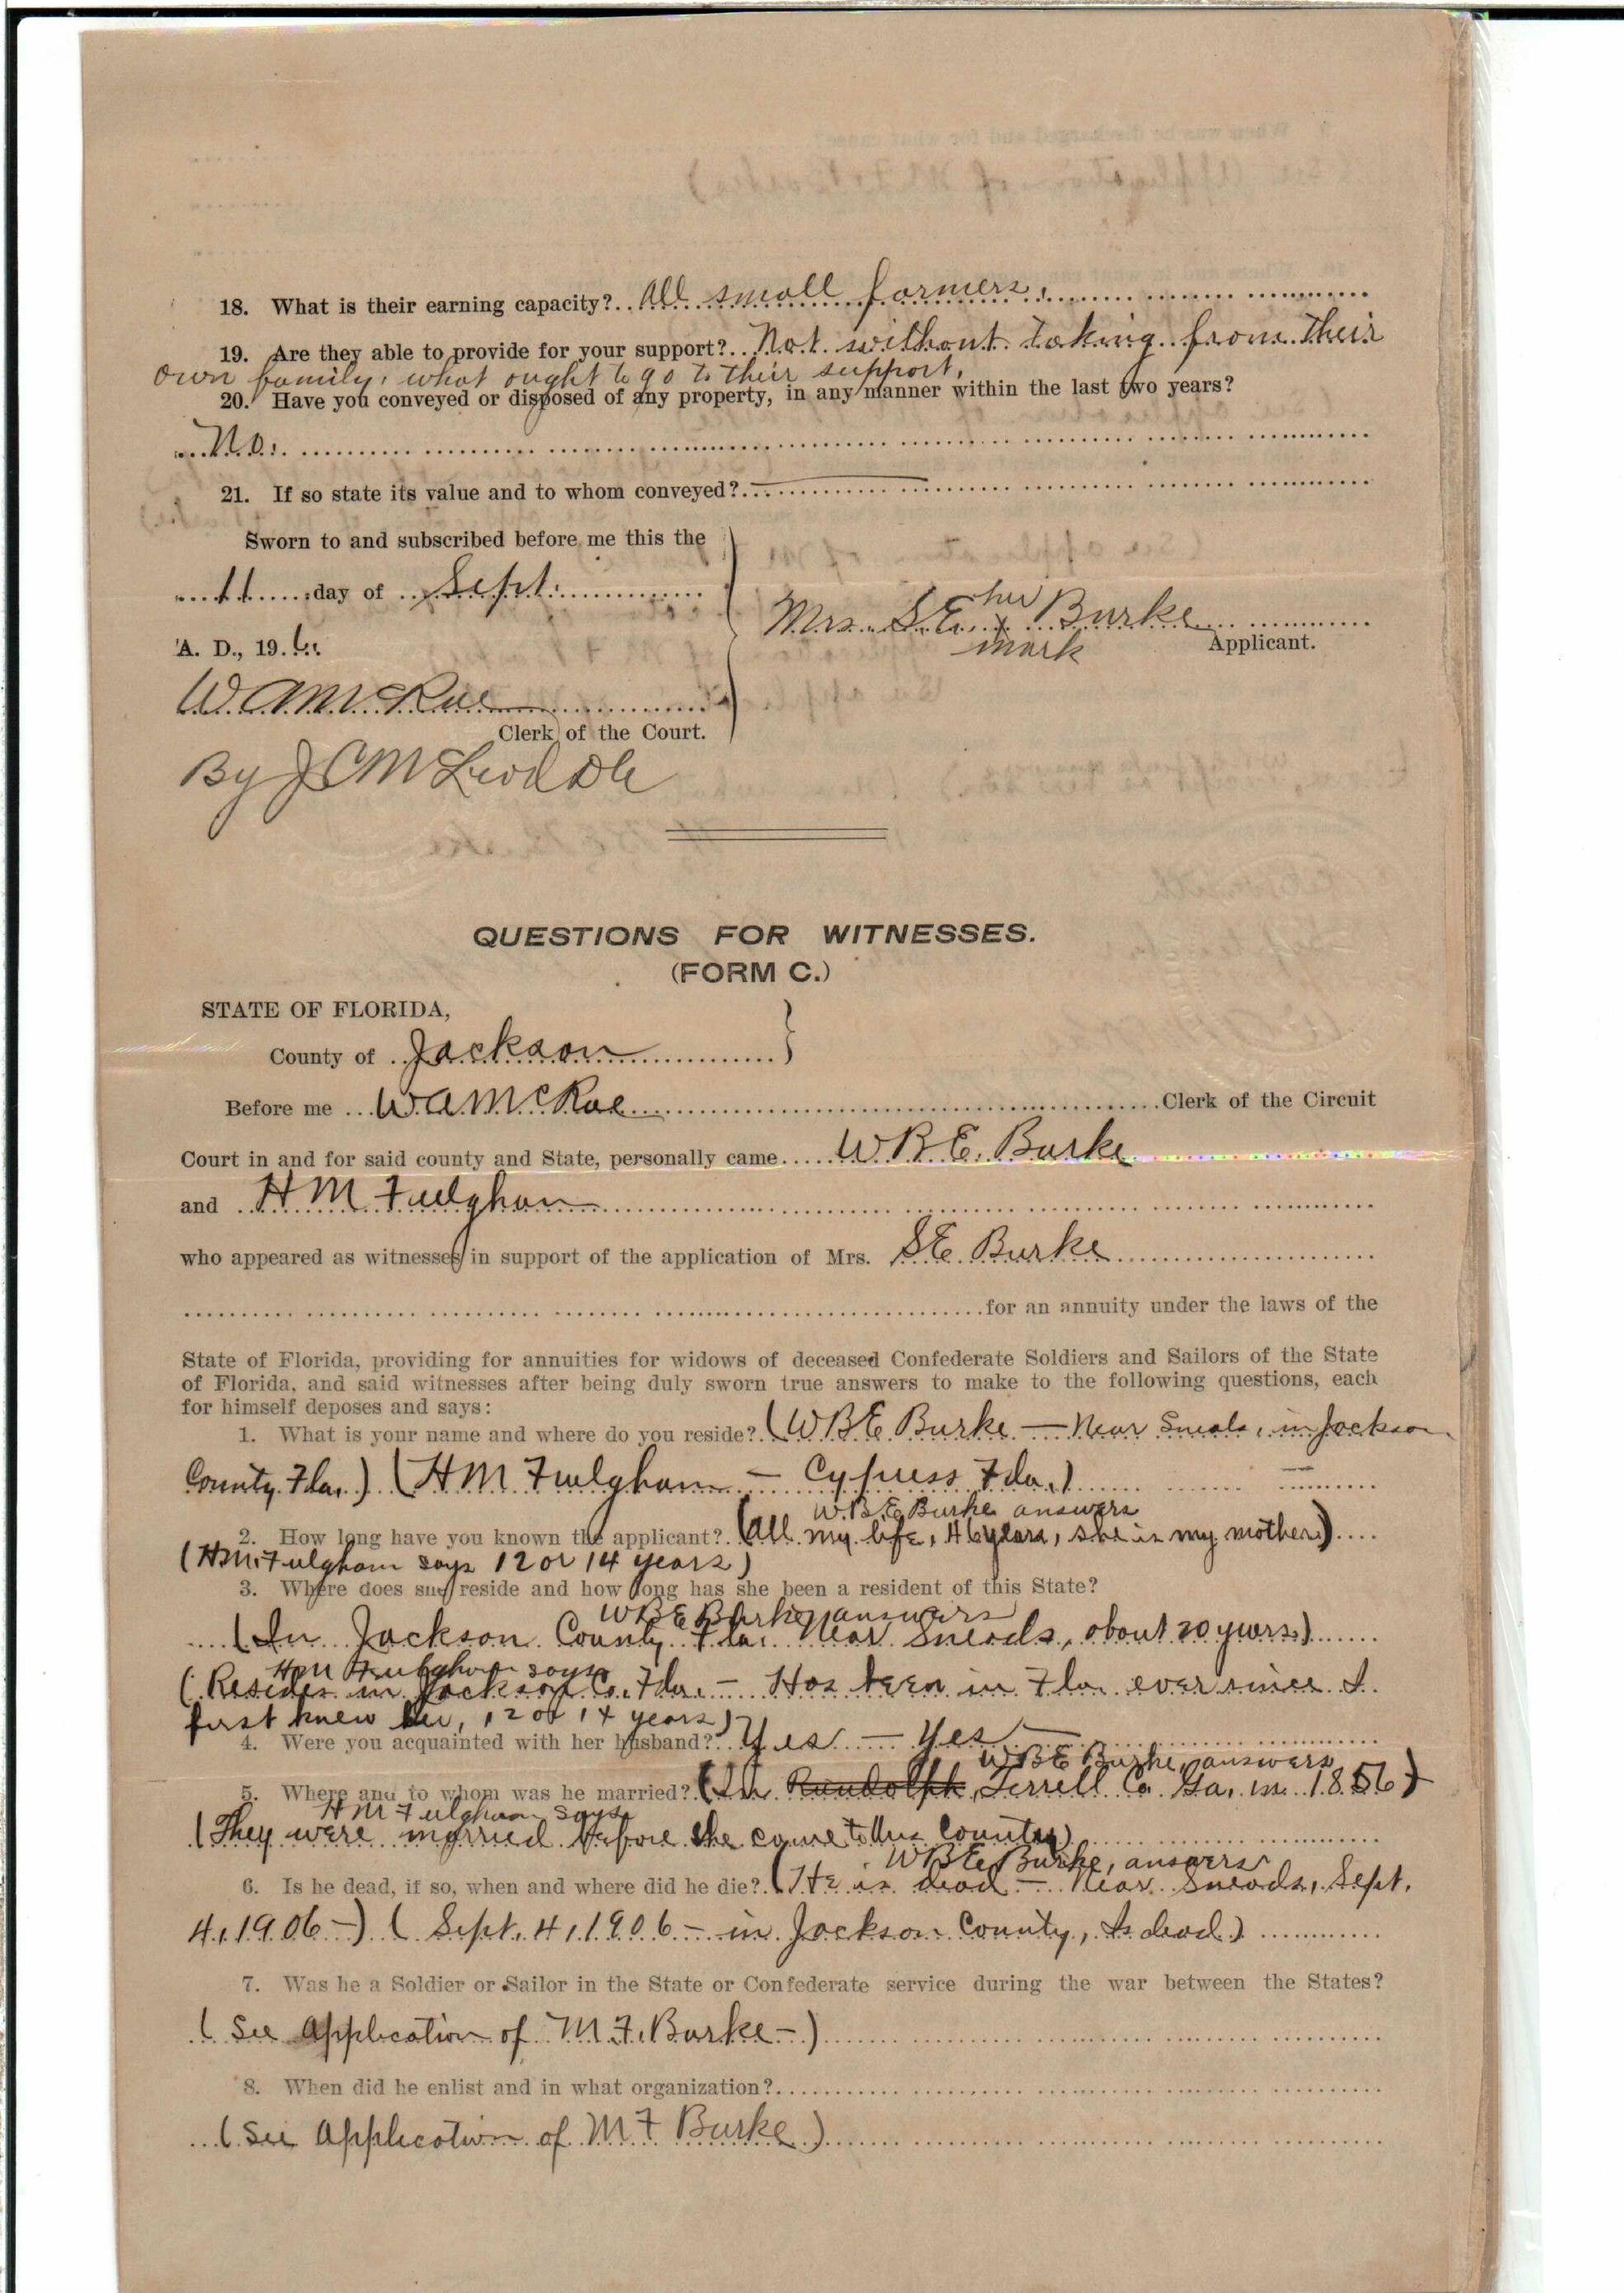 18. What is their earning capacity? All small farmers.
19. Are they able to provide for your support? Not without taking from their
own family, what ought to go to their support.
20. Have you conveyed or disposed of any property, in any manner within the last two years?
No.
21. If so state its value and to whom conveyed?
Sworn to and subscribed before me this the
11 day of Sept.
A. D., 19 6.
Mrs. S.E. her x mark Burke
Applicant.
W A McRae
Clerk of the Court.
By J C McLeod DC
QUESTIONS FOR WITNESSES.
(FORM C.)
STATE OF FLORIDA,
County of Jackson
Before me W A McRae Clerk of the Circuit
Court in and for said county and State, personally came W B E. Burke
and H M Fulghum
who appeared as witnesses in support of the application of Mrs. S E Burke
for an annuity under the laws of the
State of Florida, providing for annuities for widows of deceased Confederate Soldiers and Sailors of the State
of Florida, and said witnesses after being duly sworn true answers to make to the following questions, each
for himself deposes and says:
1. What is your name and where do you reside? (W B E Burke — Near Sneads, in Jackson
County Fla.) (H M Fulgham — Cypress Fla.)
W.B.E Burke answers
2. How long have you known the applicant? (All my life, 46 years, she is my mother)
(H.M. Fulgham says 12 or 14 years)
3. Where does she reside and how long has she been a resident of this State?
W B E Burke answers
(In Jackson County Fla. Near Sneads, about 20 years)
H M Fulghum says
(Resides in Jackson Co. Fla. — Has been in Fla. ever since I
first knew her, 12 or 14 years)
4. Were you acquainted with her husband? Yes — Yes
W B E Burke, answers
5. Where and to whom was he married? (In Randolph Terrell Co Ga. in 1856)
H M Fulghum says
(They were married before she came to this County)
W B E Burke, answers
6. Is he dead, if so, when and where did he die? (He is dead — Near Sneads, Sept.
4, 1906 —) (Sept. 4, 1906 — in Jackson County, Is dead)
7. Was he a Soldier or Sailor in the State or Confederate service during the war between the States?
(See Application of M. F. Burke —)
8. When did he enlist and in what organization?
(See Application of M F Burke)